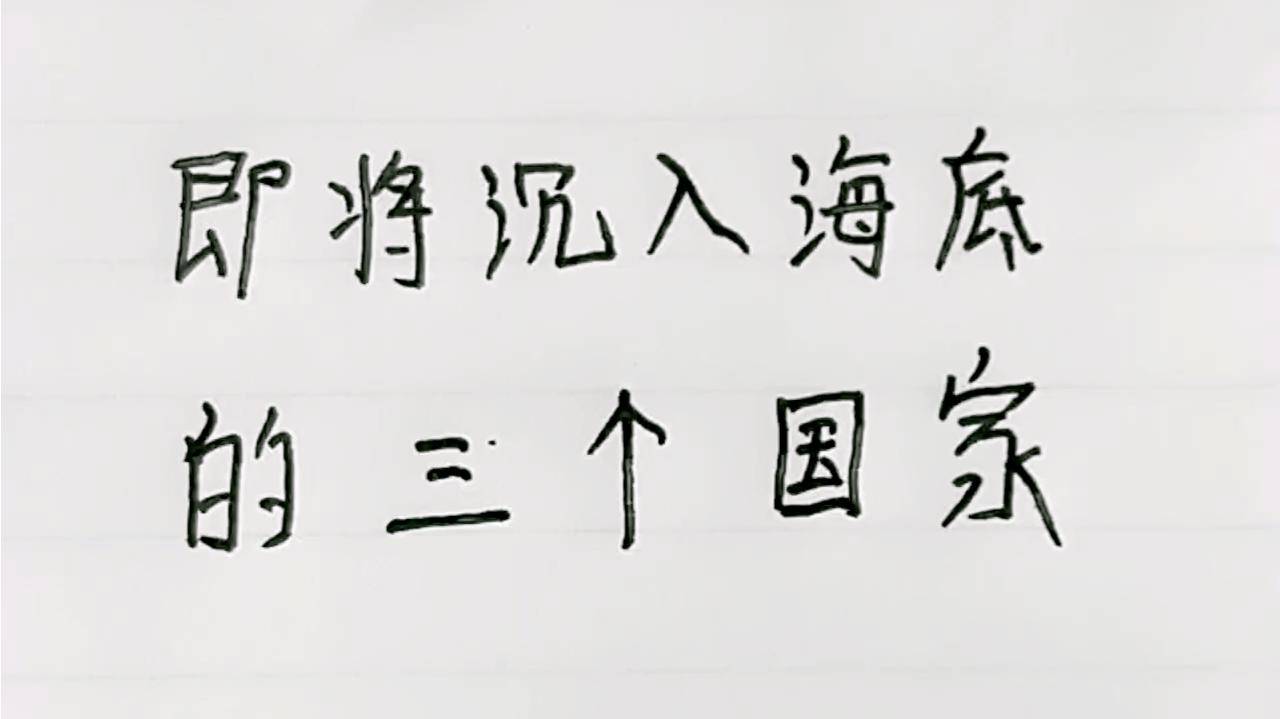 即将沉入海底
的三个国家